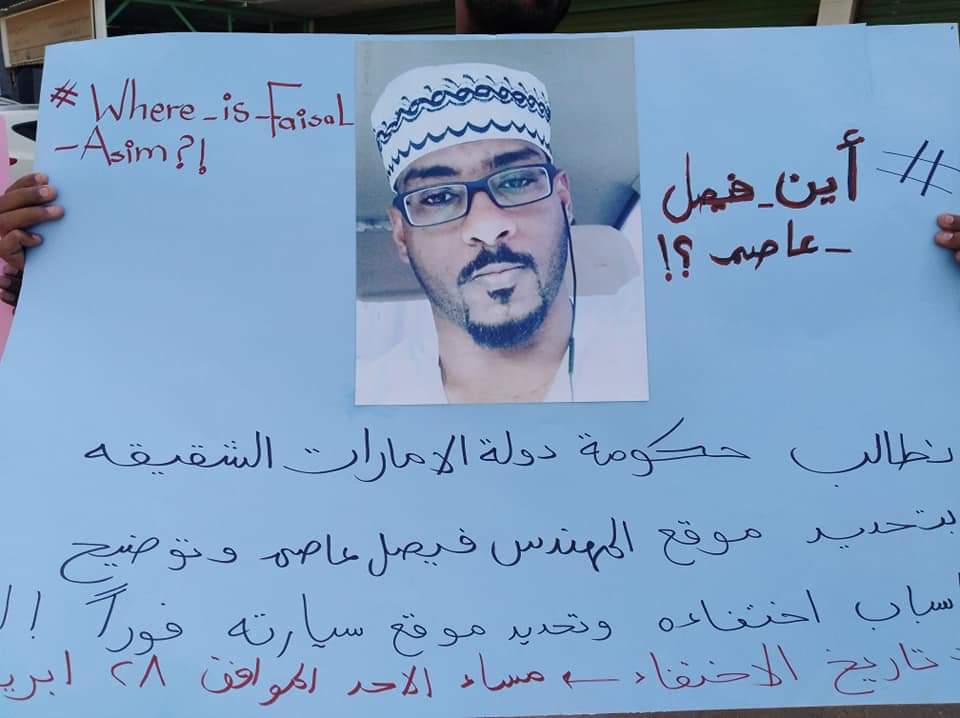 # Where_is_Faisal
_Asim?!
# أين_فيصل
_عاصم ؟!
نطالب حكومة دولة الامارات الشقيقه
بتحديد موقع المهندس فيصل عاصم وتوضيح
سباب اختفاءه وتحديد موقع سيارته فوراً !!
تاريخ الاختفاء ← مساء الاحد الموافق ٢٨ ابري